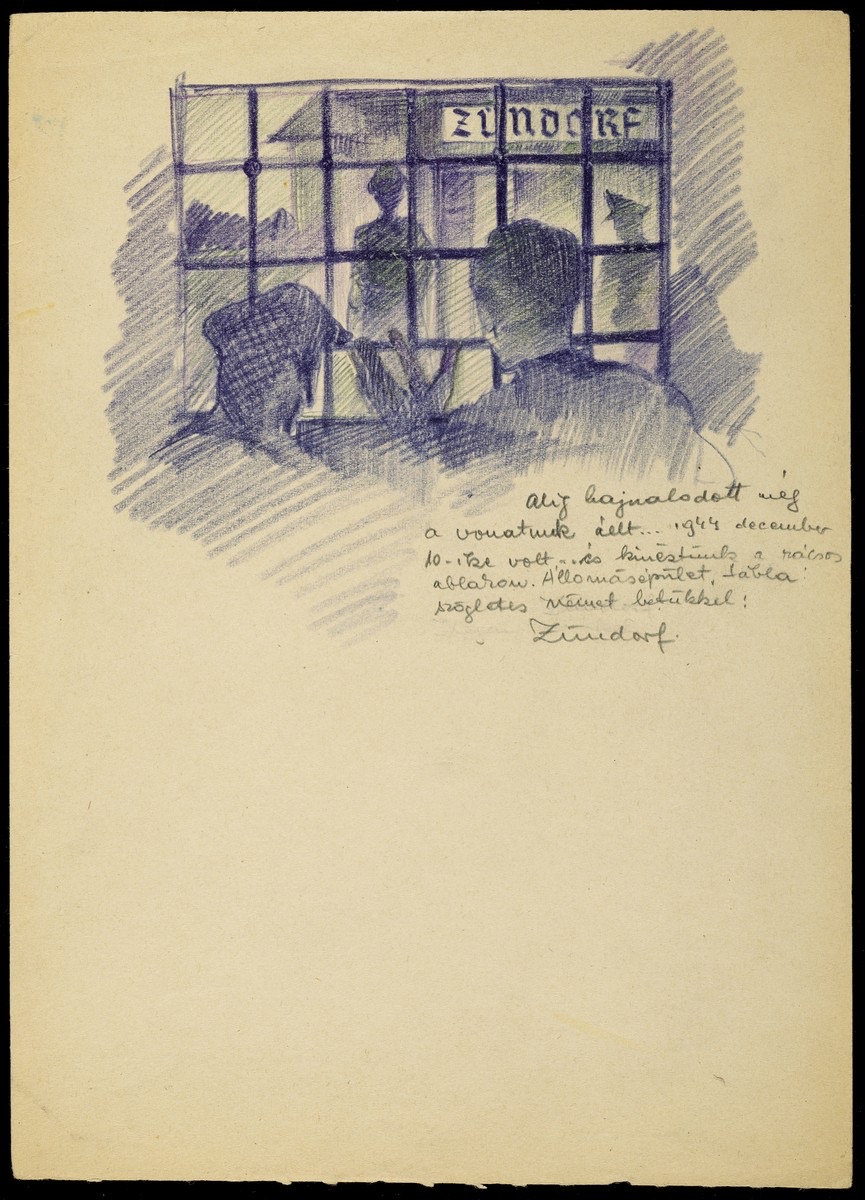 ZÜNDORF
alig hajnalodott még
a vonatunk állt... 1944 december
10-ike volt... és kinéztünk a rácsos
ablakon. Állomásépület, tábla
szögletes német betükkel:
Zündorf.